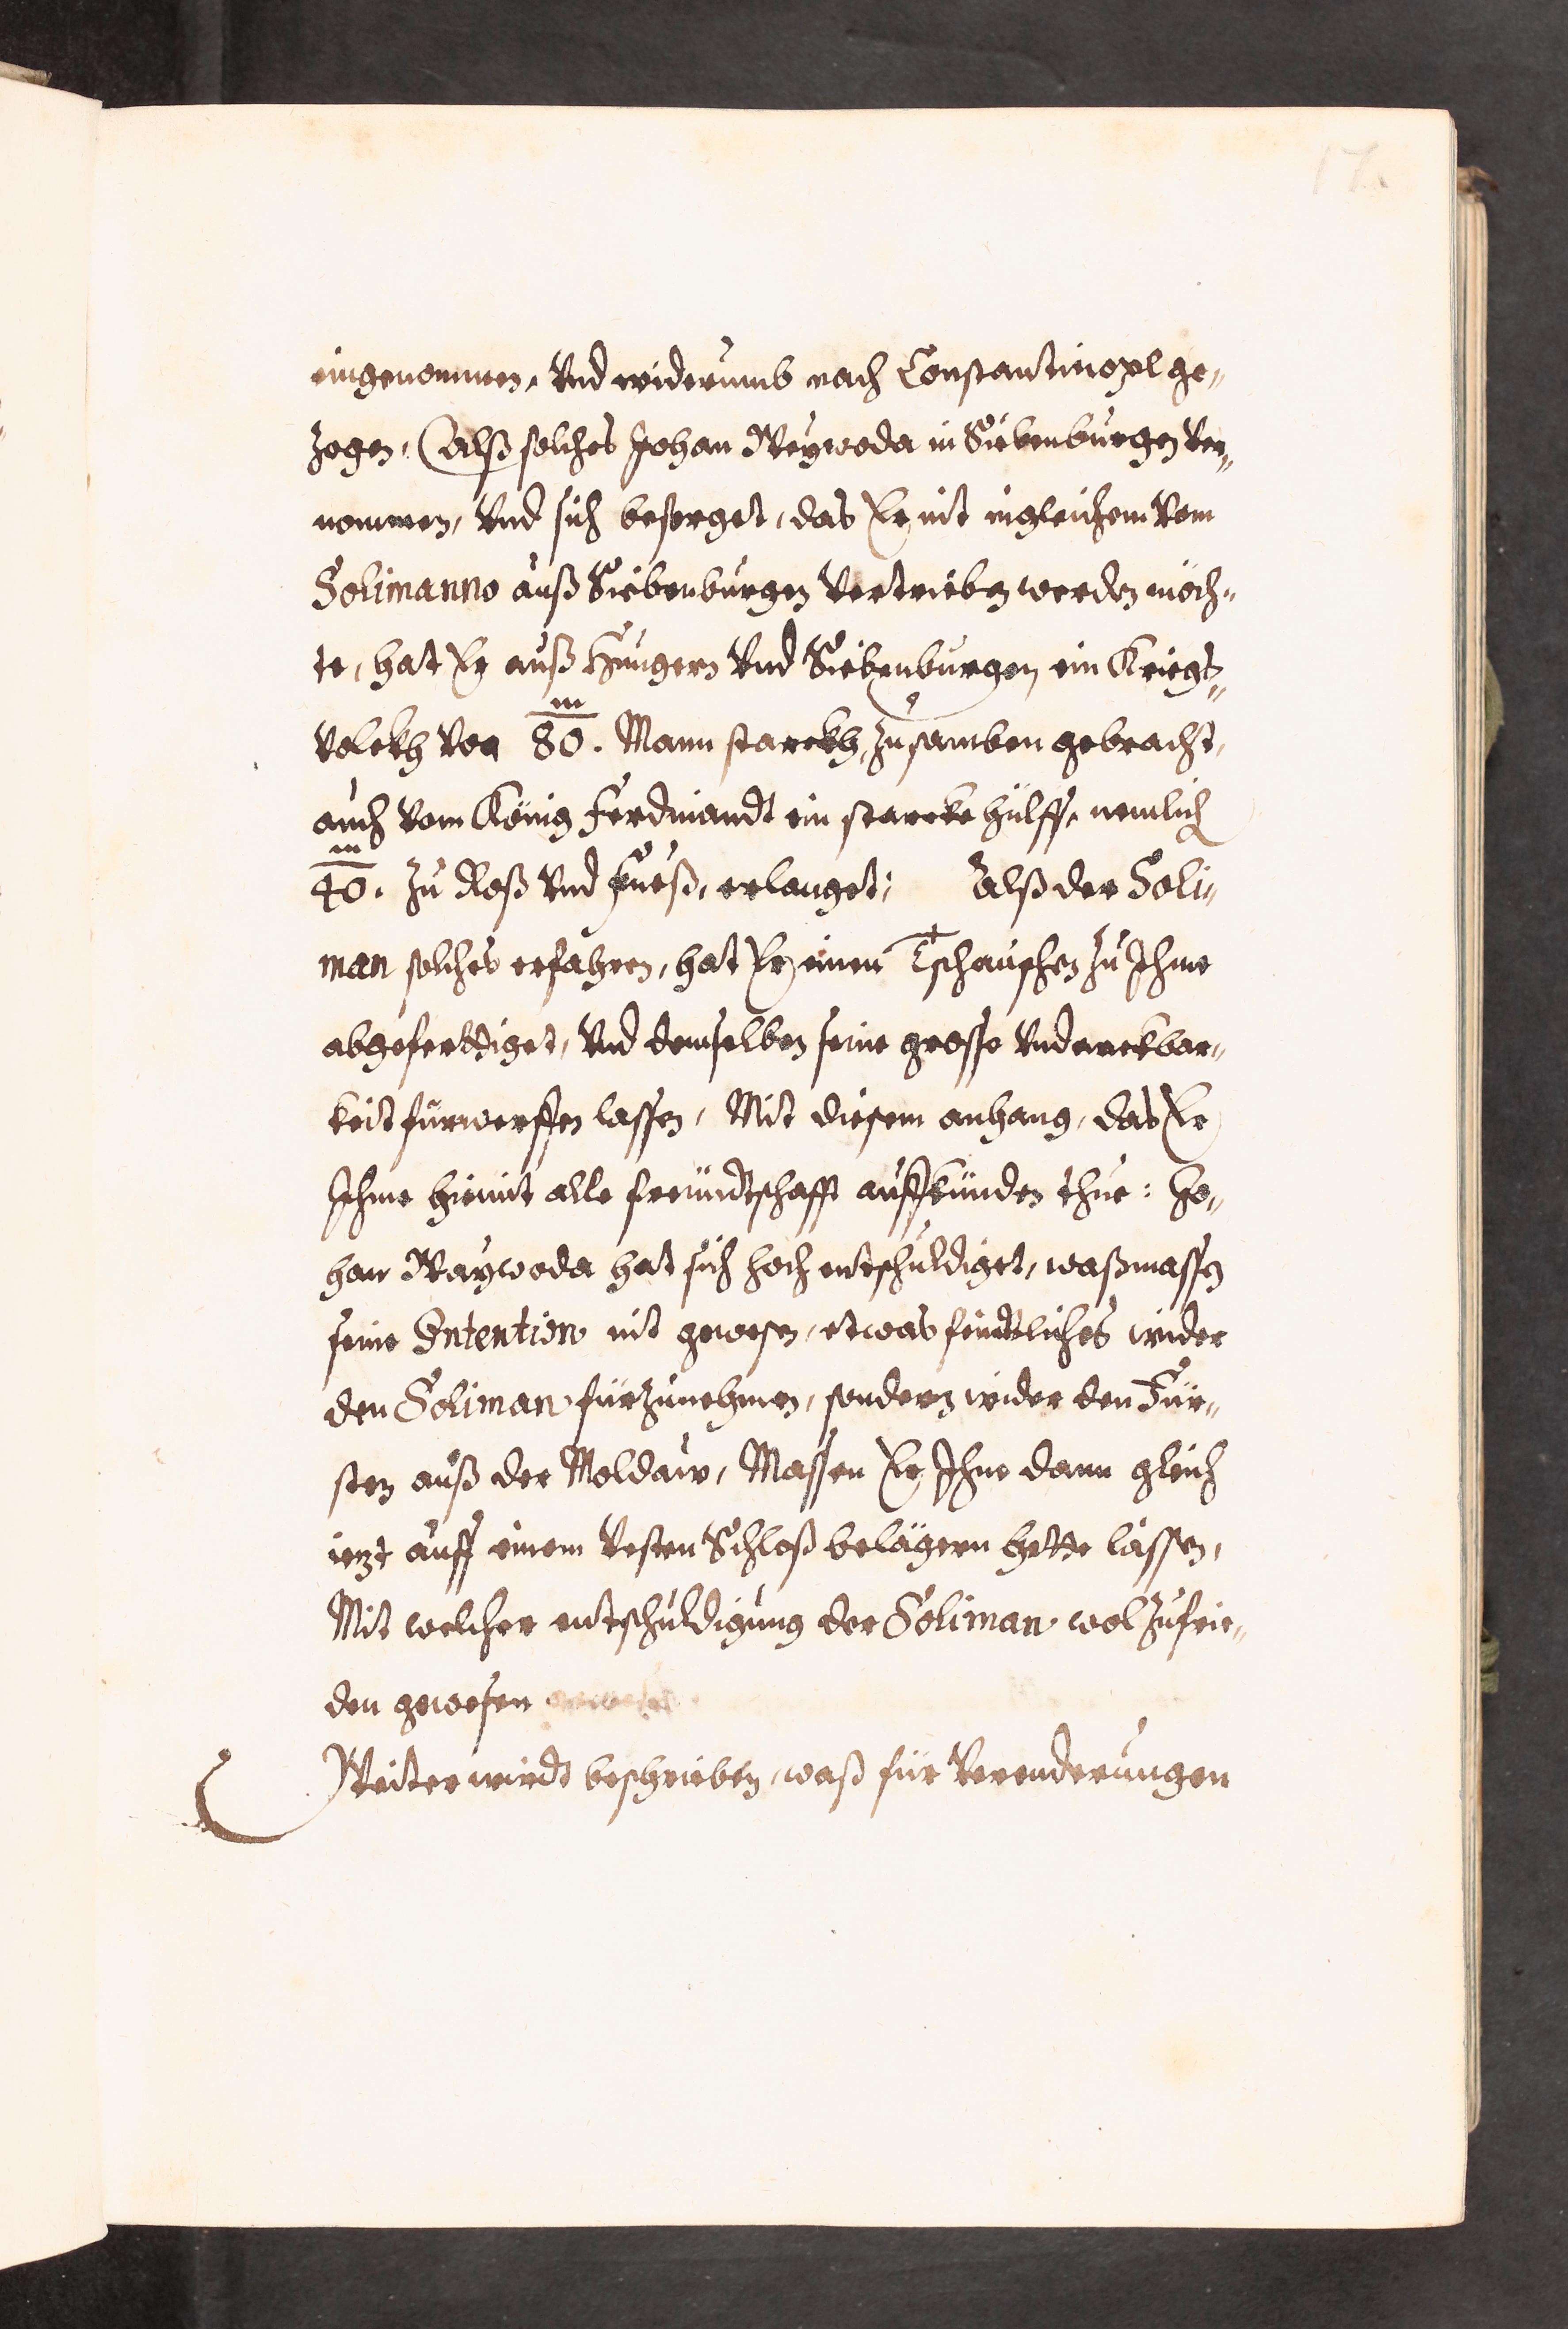 17.
eingenommen, Vnd widerumb nach Constantinopl ge„
zogen, Alß solches Johan Weywoda in Siebenburgen Ver„
nommen, Vnd sich besorget, das Er nit ingleichem Vom
Solimanno auß Siebenburgen Vertrieben werden möch„
te, hat Er auß Hungern Vnd Siebenburgen, ein Kriegs„
Volckh Von 80. m Mann starckh, zusamben gebracht,
auch Vom König Ferdinandt ein starcke hülff, nemlich
40. m zu Roß Vnd Fueß, erlanget; Alß der Soli„
man solches erfahren, hat Er einen Tschauschen zu Ihme
abgeferttiget, Vnd demselben seine grosse Vndanckbar„
keit fürwerffen lassen, Mit diesem anhang, das Er
Ihme hiemit alle freündtschafft auffkünden thue: Jo„
han Waywoda hat sich hoch entschuldiget, waßmassen
seine Intention nit gewesen, etwas feindtliches wider
den Soliman fürzunehmen, sondern wider den Für„
sten auß der Moldaw, Massen Er Ihne dann gleich
iezt auff einem Vesten Schloß belägern hette lassen,
Mit welcher entschuldigung der Soliman wol zufrie„
den gewesen
Weiter wirdt beschrieben, waß für Verenderungen